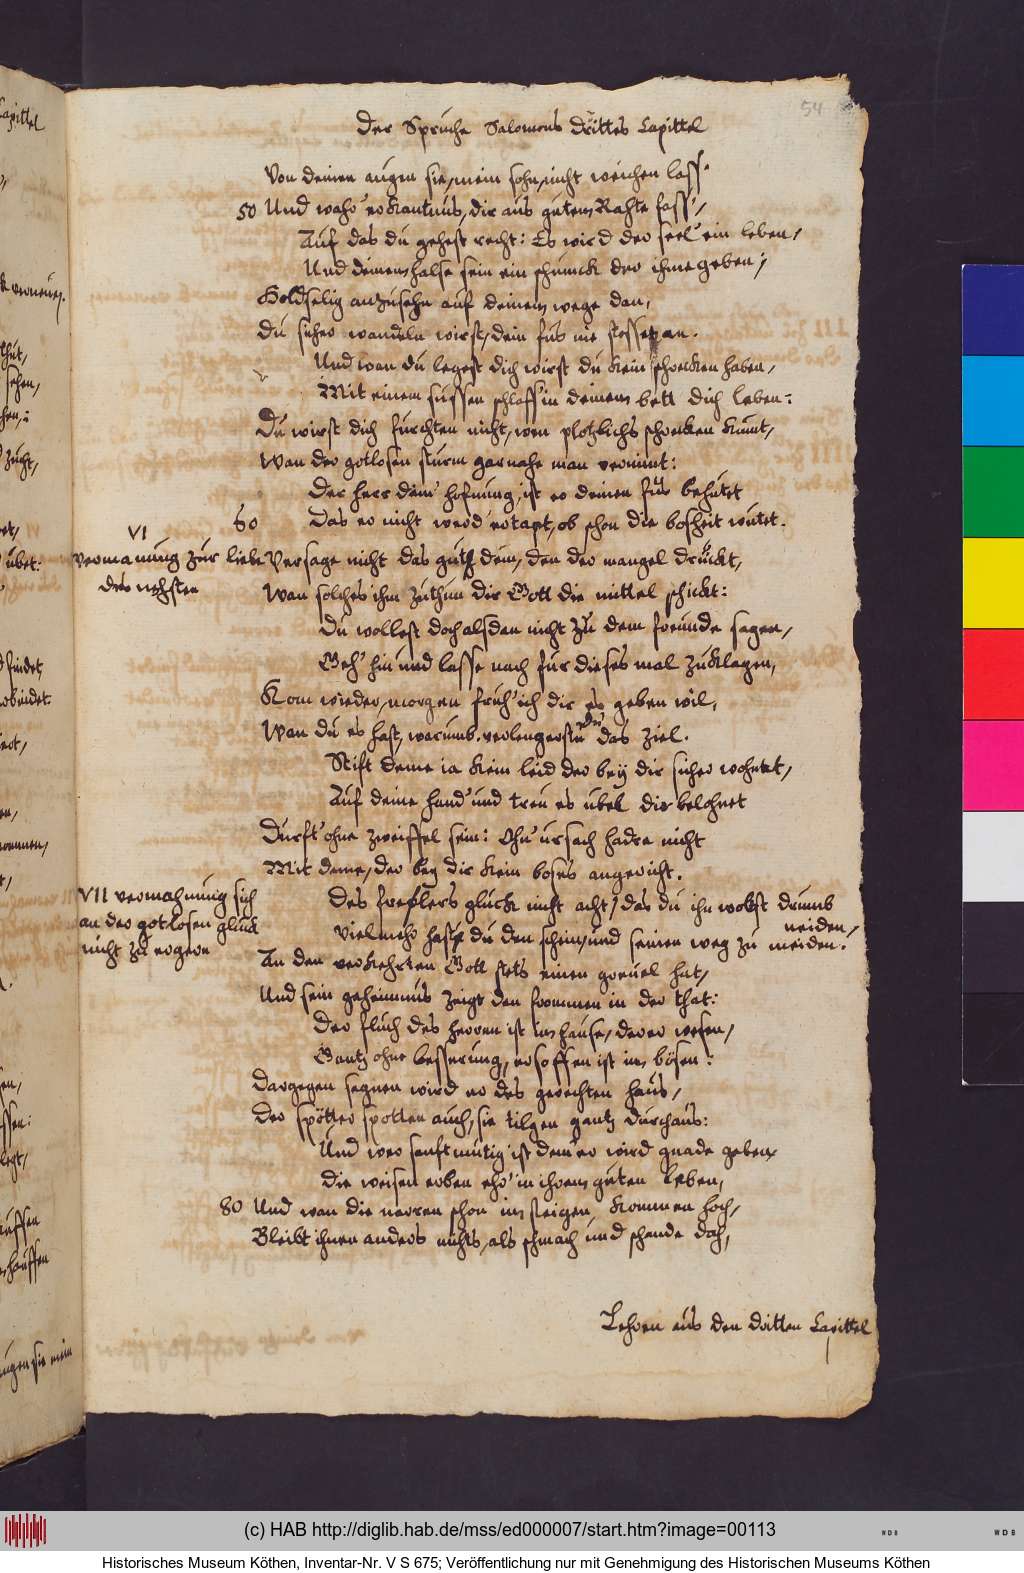 54
Der Sprüche Salomons drittes Capittel
Von deinen augen sie, mein sohn, nicht weichen lass'
50 Und wahr' erkantnus, dir aus gutem Rahte fass',
Auf das du gehest recht: Es wird der seel' ein leben,
Und deinem halse sein ein schmuck der ihme geben;
Holdselig anzusehn auf deinem wege dan,
du sicher wandeln wirst, dein fus nie stosset an.
Und wan du legest dich wirst du kein schrecken haben,
Mit einem sussen schlaff' in deinem bett dich laben:
Du wirst dich furchten nicht, wen plotzlichs schrecken kümt,
Wan der gotlosen sturm gar nahe man vernimt:
Der herr dein' hofnung, ist er deinen fus behütet
60 Das er nicht werd' ertapt, ob schon die bosheit wütet.
VI
vermanung zur liebe
des nehsten
Versage nicht das guth dem, den der mangel drückt,
Wan solches ihm zuthun dir Gott die mittel schickt:
Du wollest doch alsdan nicht zu dem freunde sagen,
Geh' hin und lasse nach für dieses mal zuklagen,
Kom wieder, morgen früh' ich dir es geben wil,
Wan du es hast, warumb verlengerstu das Ziel.
Stift deme ia kein leid der beÿ dir sicher wohnet,
Auf deine hand' und treu es übel dir belohnet
Durft' ohne zweiffel sein: Ohn' ursach hadre nicht
Mit deme, der beÿ dir kein boses angericht.
VII vermahnung sich
an der gotlosen glück
nicht zu ergern
Des frefflers glück nicht acht, das du ihn wolst drumb
neiden,
Viel mehr hass' du den schein, und seinen weg zu meiden:
An den verkehrten Gott stets einen greuel hat,
Und sein geheimnus zeigt den frommen in der that:
Der fluch des herren ist im hause, derer wesen,
Gantz ohne besserung, ersoffen ist im bösen:
Dargegen segnen wird er des gerechten haus,
Der spötter spotten auch, sie tilgen gantz durchaus:
Und wer sanftmütig ist dem er wird gnade geben
die weisen erben ehr' in ihrem guten leben,
80 Und wan die narren schon im steigen kommen hoch,
Bleibt ihnen anders nichts, als schmach und schande doch,
Lehren aus den dritten Capittel
(c) HAB http://diglib.hab.de/mss/ed000007/start.htm?image=00113
Historisches Museum Köthen, Inventar-Nr. V S 675; Veröffentlichung nur mit Genehmigung des Historischen Museums Köthen